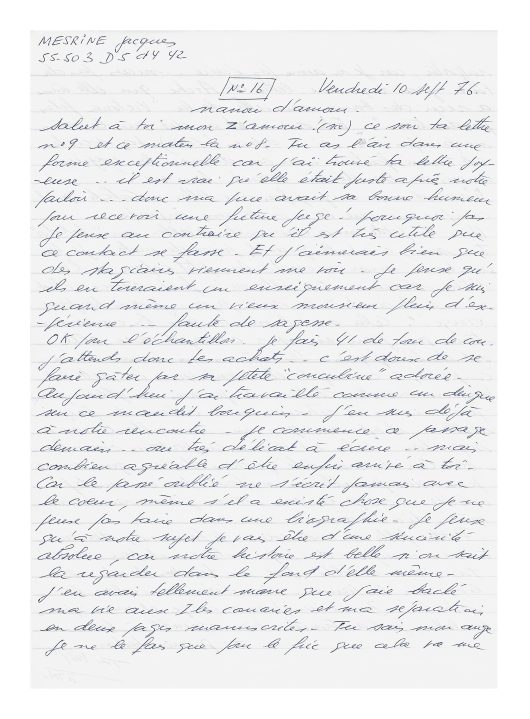 MESRINE Jacques
55.503 D5 cl4 42
No 16 Vendredi 10 sept 76.
d'amour.
Salut à toi mon Z'amour! (sic) ce soir ta lettre
no 9 et ce matin la no 8. Tu as l'air dans une
forme exceptionnelle car j'ai trouvé ta lettre joy-
-euse... il est vrai qu'elle était juste après notre
parloir... donc ma puce avait sa bonne humeur
pour recevoir une future juge! pourquoi pas
Je pense au contraire qu'il est très utile que
ce contact se fasse. Et j'aimerais bien que
des stagiaires viennent me voir. Je pense qu'
ils en tireraient un enseignement car je suis
quand même un vieux monsieur plein d'ex-
-périence... faute de sagesse.
OK pour l'échantillon. Je fais 41 de tour de cou.
J'attends donc tes achats... c'est doux de se
faire gâter par sa petite adorée.
Aujourd'hui j'ai travaillé comme un dingue
sur ce maudit bouquin. J'en suis déjà
à notre rencontre. Je commence ce passage
demain... très délicat à écrire... mais
combien agréable d'être enfin arrivé à toi.
Car le passé oublié ne s'écrit jamais avec
le coeur, même s'il a existé chose que je ne
peux pas taire dans une biographie. Je pense
qu'à notre sujet je vais être d'une sincérité
absolue, car notre histoire est belle si on sait
la regarder dans le fond d'elle même.
J'en avais tellement marre que j'ai baclé
ma vie aux Iles canaries et ma séparation
en deux pages manuscrites. Tu sais mon ange
Je ne le fais que pour le fric que cela va me